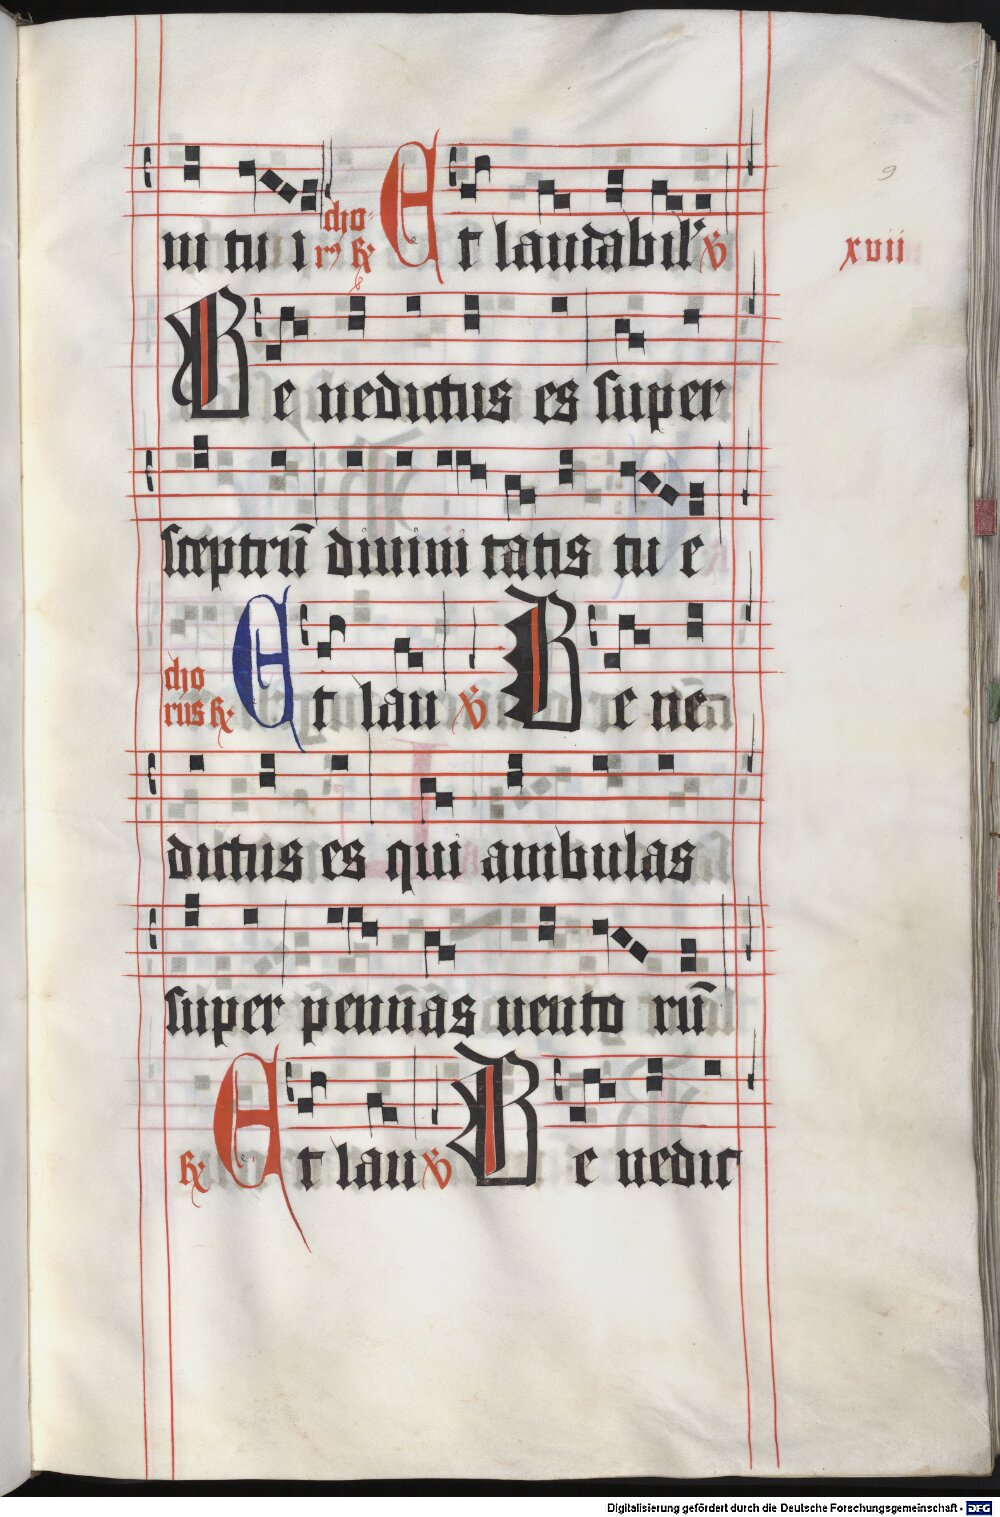 9
xvii
ni tu i chorꝰ ℟ Et laudabil' ℣
Be nedictus es super
sceptrū divini tatis tu e
chorus ℟ Et lau ℣ Be nen
dictus es qui ambulas
super pennas uento rū
℟ Et lau ℣ Be nedic
Digitalisierung gefördert durch die Deutsche Forschungsgemeinschaft - DFG